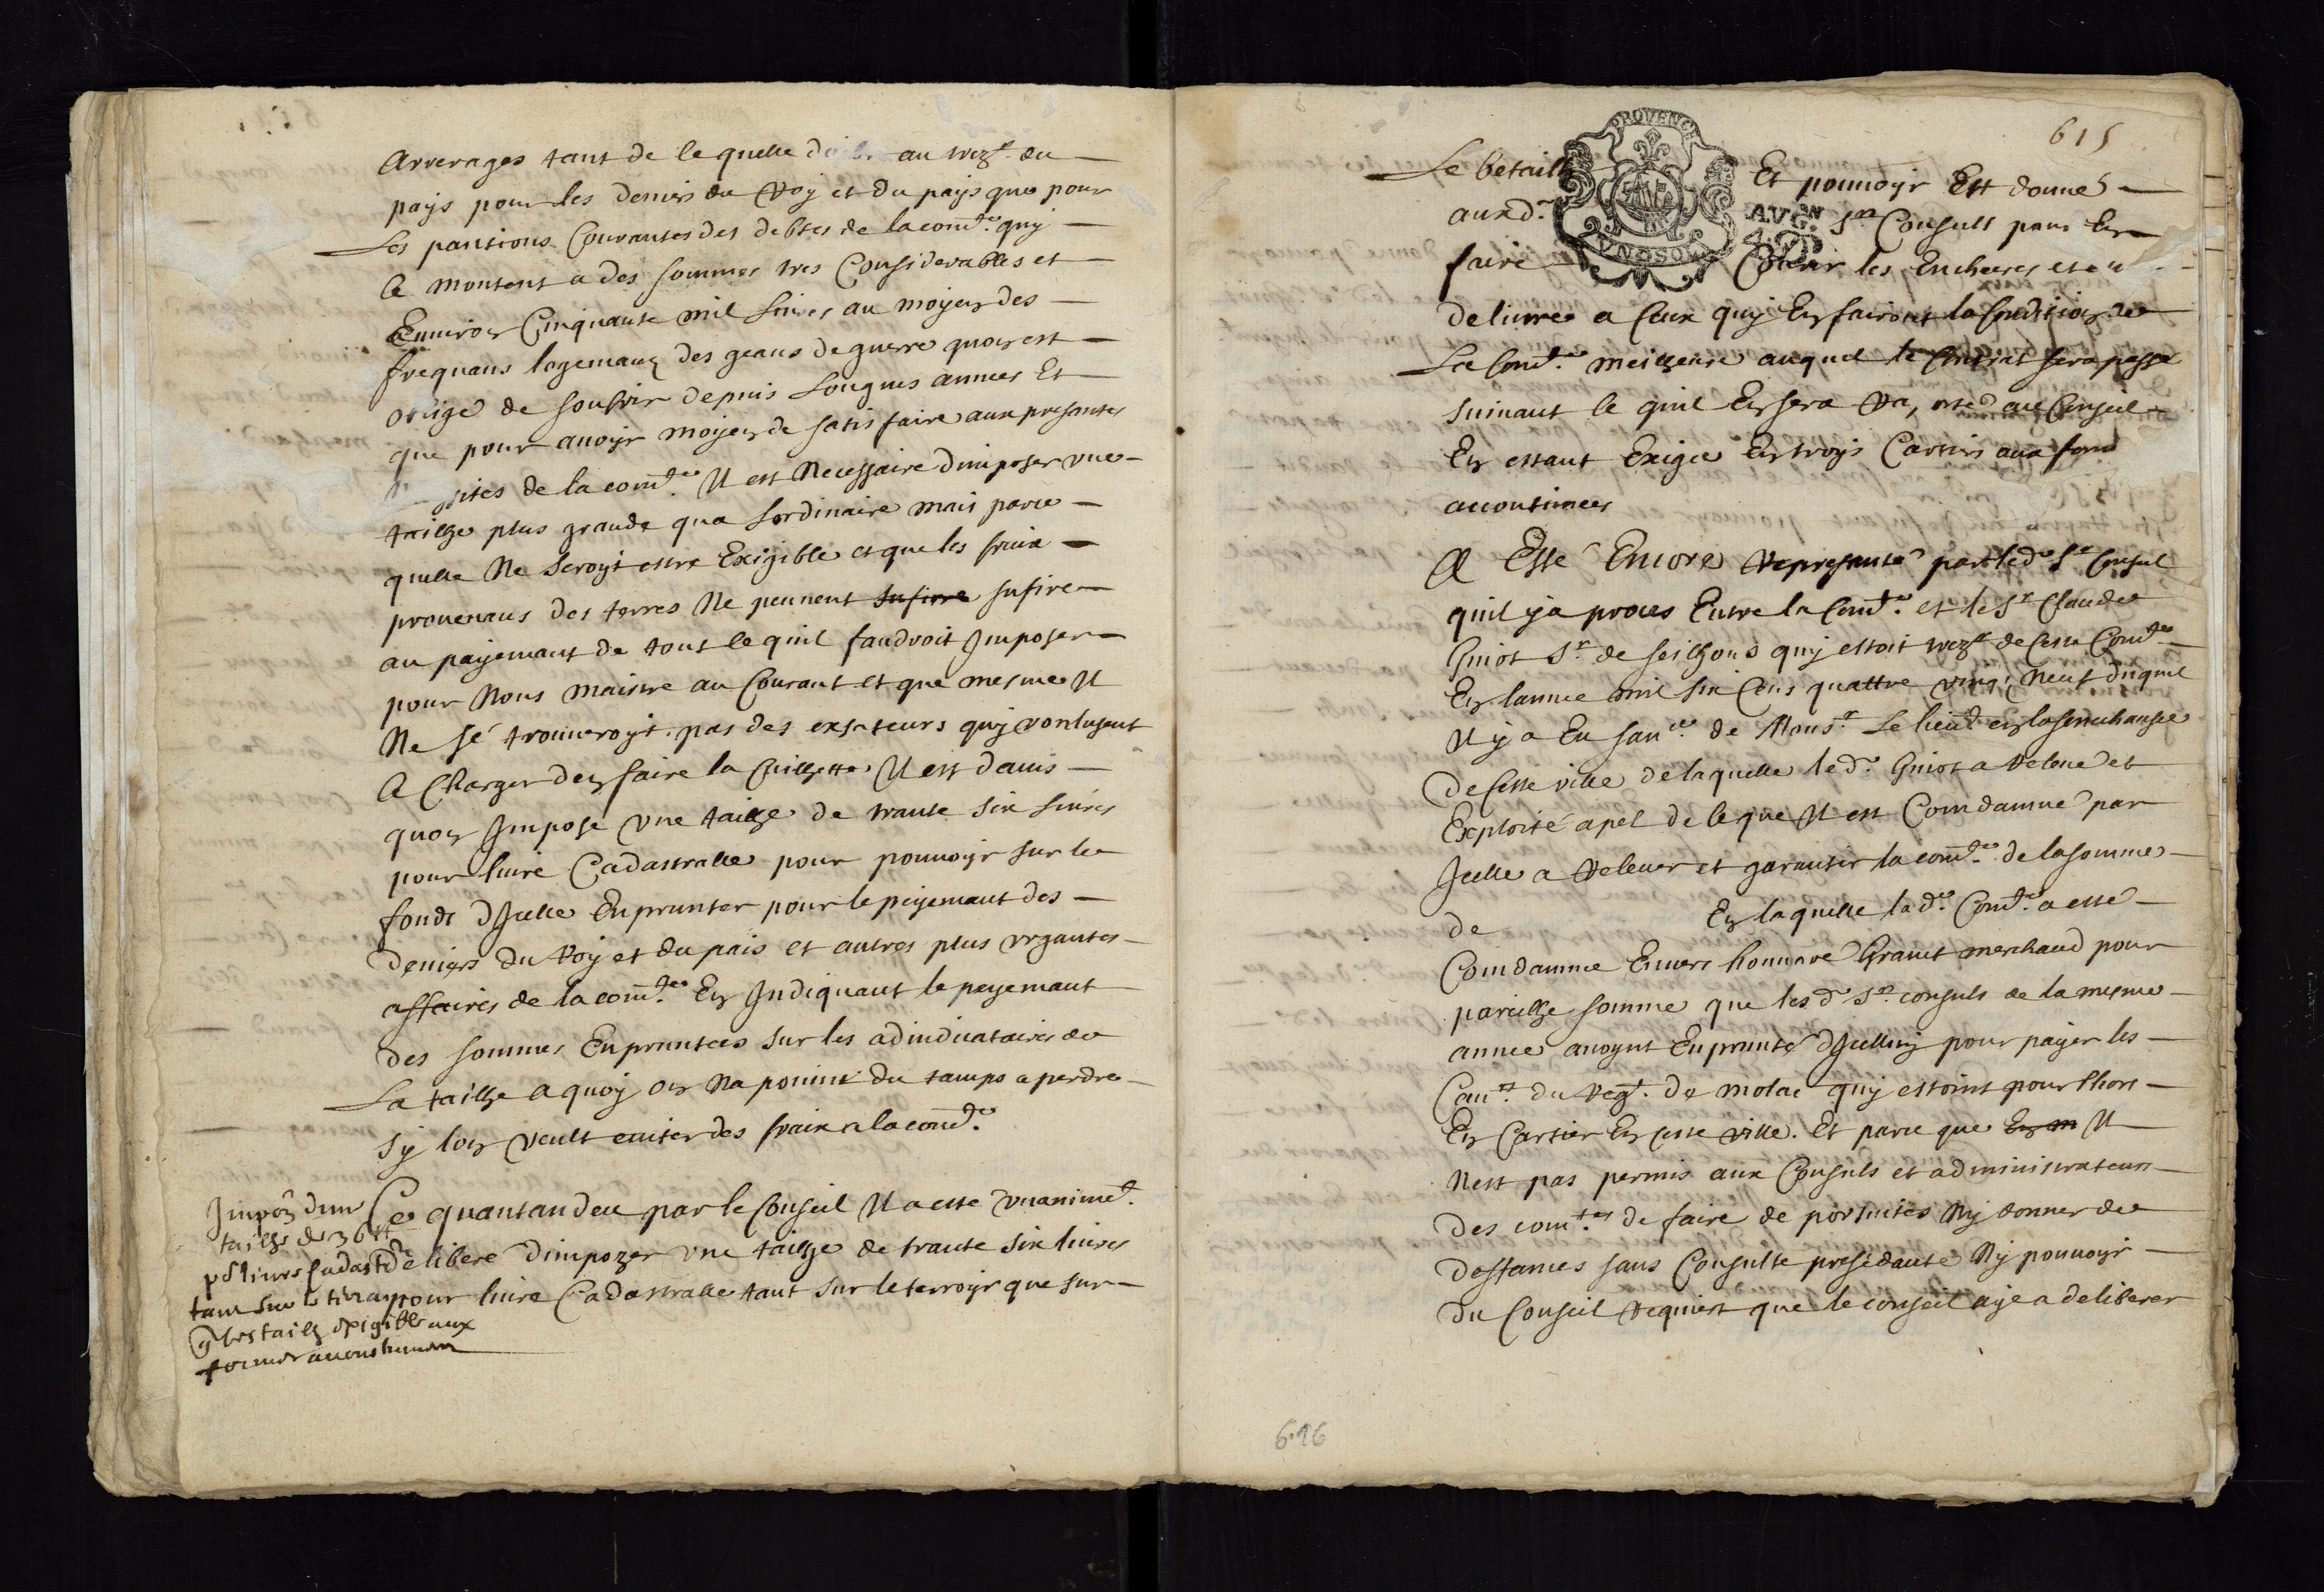 Arrerages tant de le quelle au trezr. du
pays pour les deniers du Roy et du pays que pour
Les pantions Courantes des debtes de la comté. quy
se montent a des sommes tres Considerables et
Enuiron Cinquante mil liures au moyen des
frequans logemans des geans de guerre quon est
obligé de soufrir depuis Longues annees Et
que pour auoyr moyen de satisfaire aux presantes
de la comté. Il est Necessaire dimposer vne
tailhe plus grande qua Lordinaire mais parce
quelle Ne seroyt estre Exigible et que les fruix
prouenans des terres Ne peuuent sufire sufire
au payemant de tout le quil faudroit Imposer
pour Nous maistre au Courant et que mesme Il
Ne se trouueroyt pas des exsateurs quy voulusent
se Charger den faire la Cuilhette Il est dauis
quon Impose vne tailhe de trante six liures
pour liure Cadastralle pour pouuoyr sur le
fondt dIcelle Enprunter pour le peyemant des
deniers du Roy et du pais et autres plus vrgantes
affaires de la comté. En Indiquant le peyemant
des sommes Enpruntees sur les adiudicataires de
La tailhe a quoy on Na pouint du tamps a perdre
sy lon veult euiter des fraix a la comté.
Impoon dune
tailhe de 36 ℔
pr liures Cadastr
tant sur le terroyr
q bestailh exigible aux
formes acoustumees
Ce quantandeu par le Conseil Il a esté vnanimt.
delibere dimpozer vne tailhe de trante six liures
pour liure Cadastralle tant sur le terroyr que sur
615
PROVENCE
AVGN
4.D
Le betailh Et pouuoyr Est donné
aux d. Srs Consuls pour En
faire Courir les Encheres et en
deliuree a Ceux quy En fairont la Condition de
La Comté. meilheure auquel le Contrat sera passe
suiuant le quil En sera raporté au Conseil
En estant Exigee En troys Cartiers aux form
acoutumees
A Esté Encore represanté par led. Sr Consul
quil ya proces Entre la Comté. et le Sr Claude
Guiot Sr. de seilhons quy estoit trezr de Ceste Comté
En lannee mil six Cens quattre vingt Neuf duquel
Il y a Eu sance. de Monsr. Le lieut. en la senechausée
de Ceste ville de laquelle le d. Guiot a releué et
Exploité apel de le que Il est Comdamné par
Icelle a releuer et garantir la comté. de la somme
de En laquelle la d. Comté. a esté
Comdamnee Enuers honnoré Granet merchand pour
pareilhe somme que les d Srs. consuls de la mesme
annee auoynt Enprunté dIcelluy pour payer les
Caurs. du regt. de molac quy estoint pour lhors
En Cartier En ceste ville. Et parce que En m Il
Nest pas permis aux Consuls et administrateurs
des comtés de faire de porsuites Ny donner de
deffances sans Consulte presedante Ny pouuoyr
du Conseil requiert que le conseil aye a deliberer
616